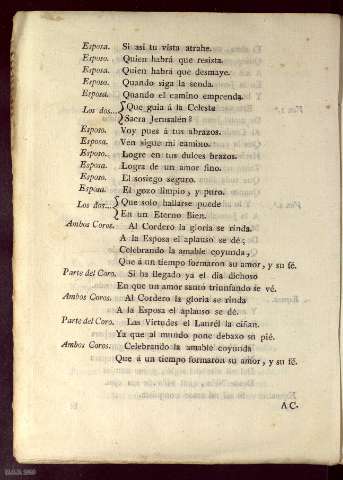 Esposa. Si asi tu vista atrahe.
Esposo. Quien habrá que resista.
Esposa. Quien habrá que desmaye.
Esposo. Quando siga la senda.
Esposa. Quando el camino emprenda.
Los dos... { Que guia á la Celeste
Sacra Jerusalén?
Esposo. Voy pues á tus abrazos.
Esposa. Ven sigue mi camino.
Esposo. Logre en tus dulces brazos.
Esposa. Logra de un amor fino.
Esposo. El sosiego seguro.
Esposa. El gozo limpio, y puro.
Los dos... { Que solo hallarse puede
En un Eterno Bien.
Ambos Coros. Al Cordero la gloria se rinda.
A la Esposa el aplauso se dé;
Celebrando la amable coyunda,
Que á un tiempo formaron su amor, y su fé.
Parte del Coro. Si ha llegado ya el dia dichoso
En que un amor santo triunfando se vé.
Ambos Coros. Al Cordero la gloria se rinda
A la Esposa el aplauso se dé.
Parte del Coro. Las Virtudes el Laurél la ciñan.
Ya que al mundo pone debaxo su pié.
Ambos Coros. Celebrando la amable coyunda
Que á un tiempo formaron su amor, y su fé.
AC-